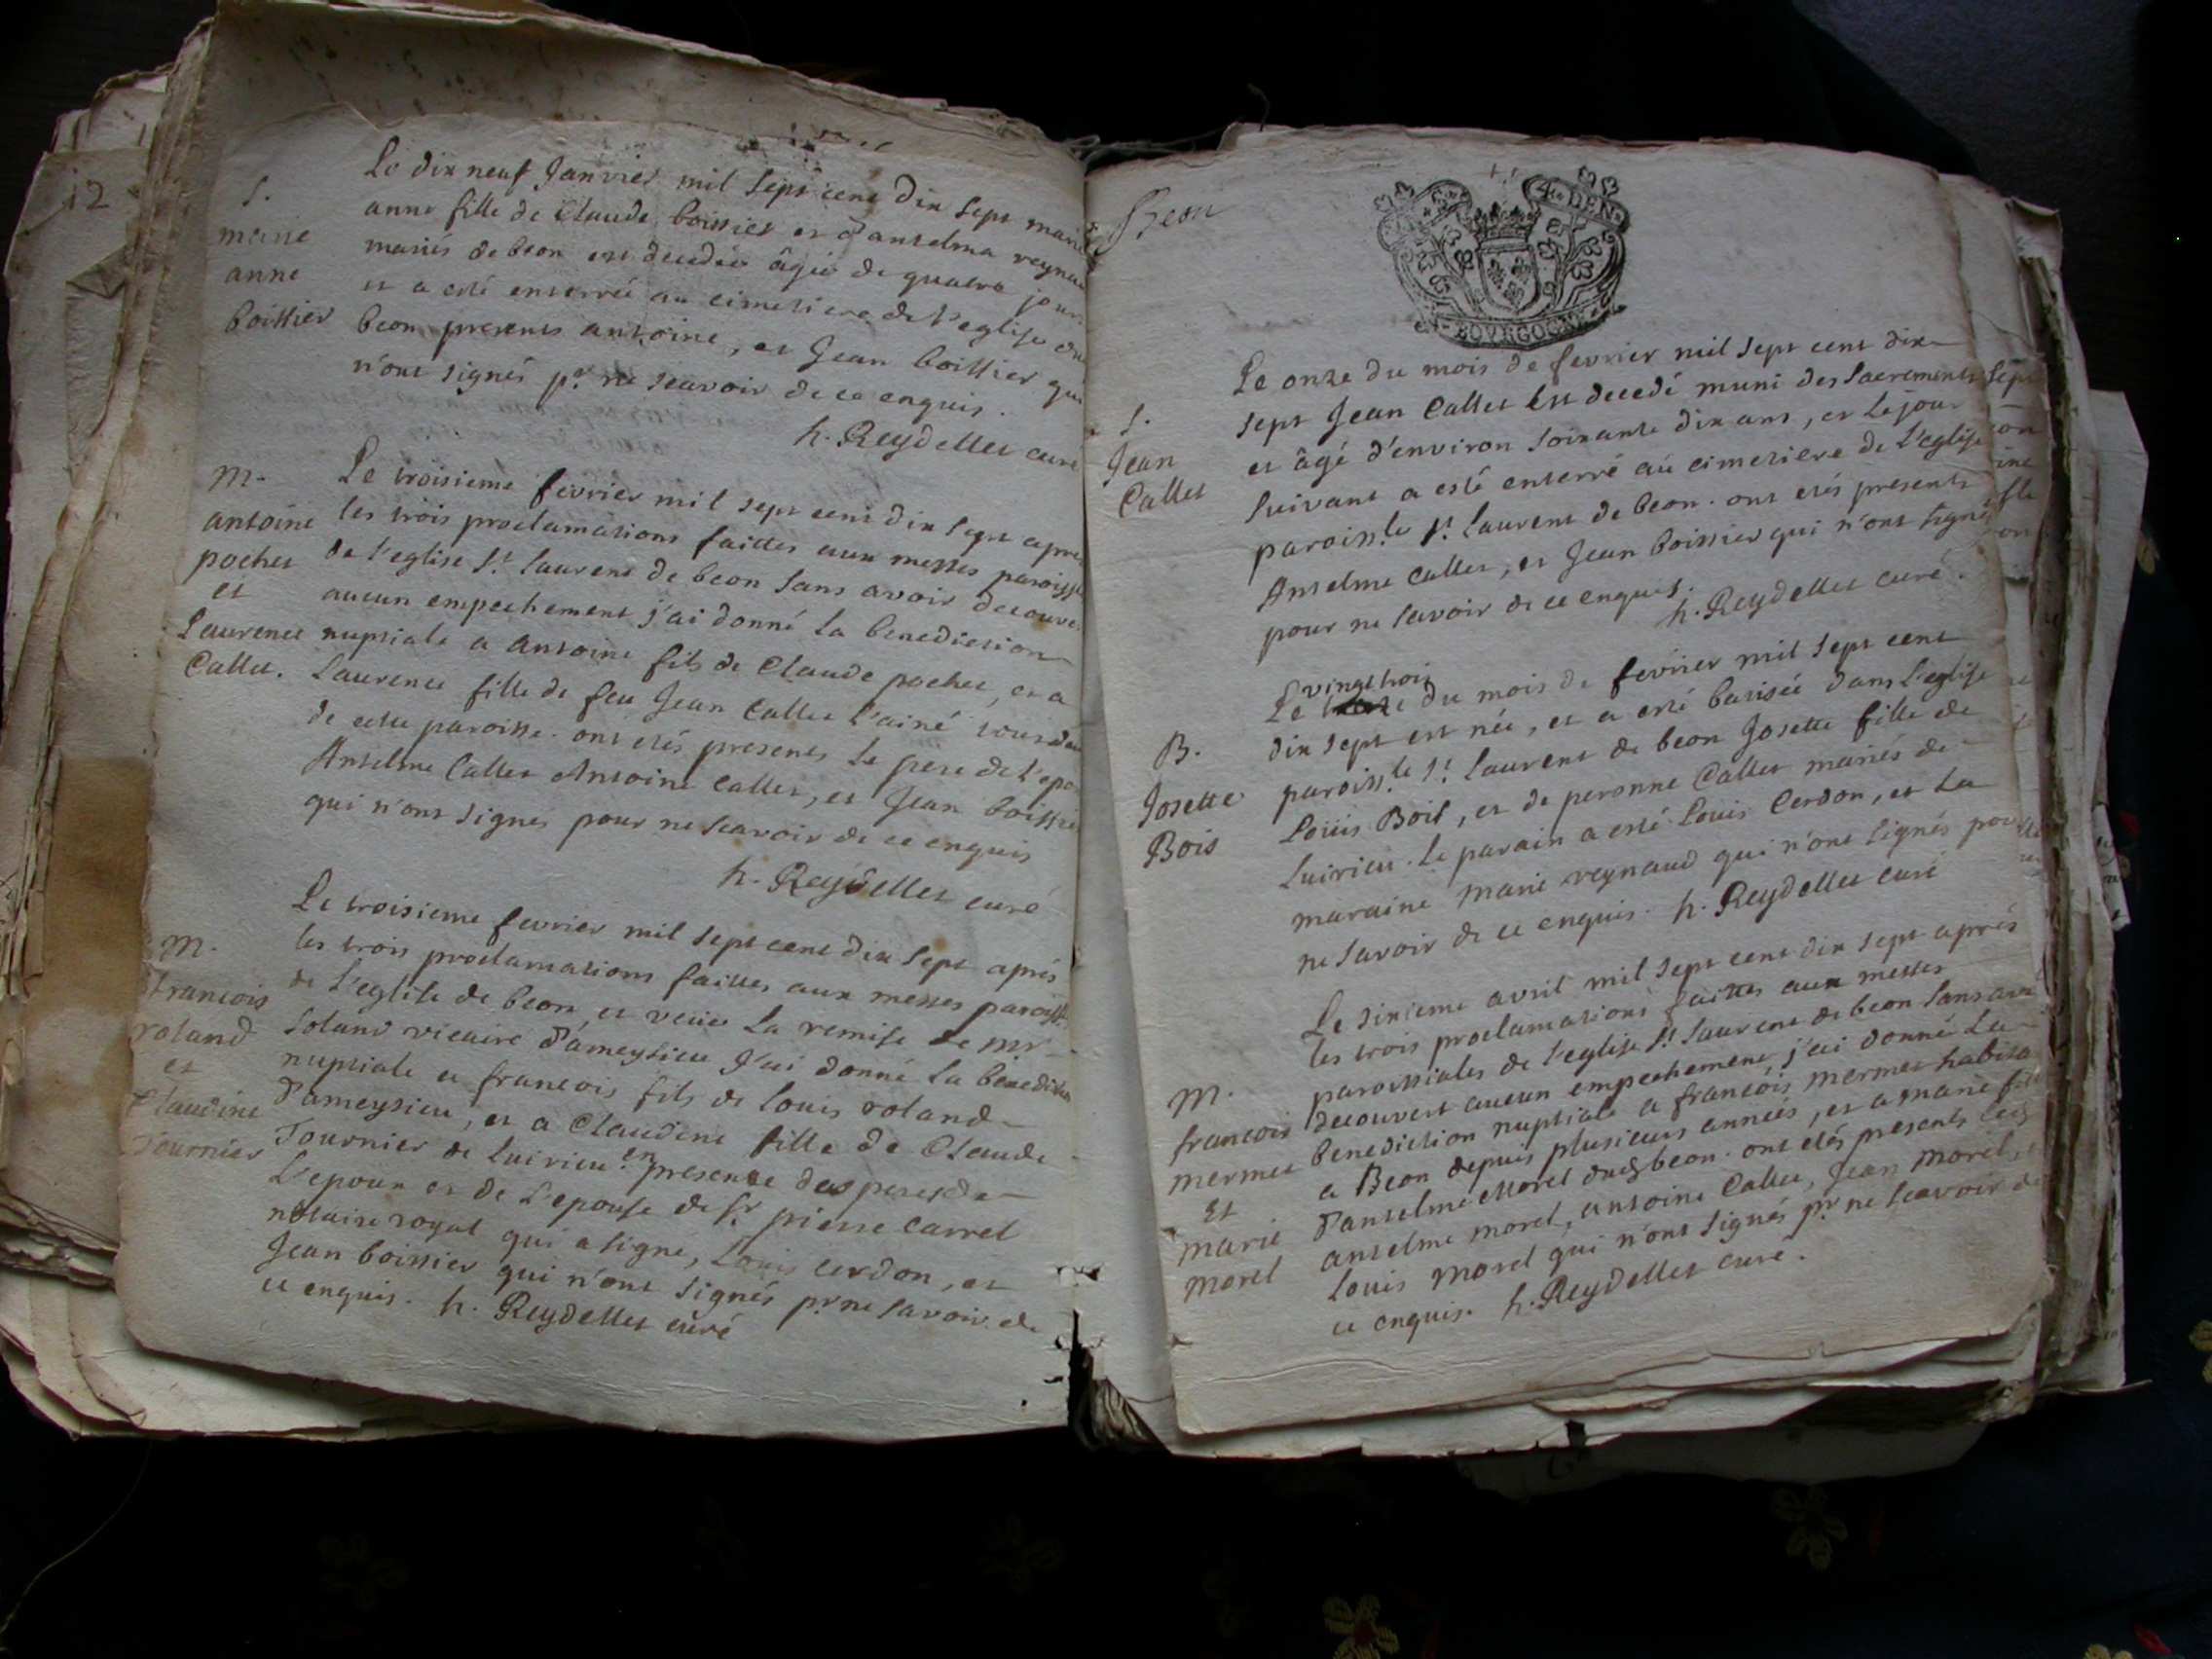 12
Le dix neuf Janvier mil sept cent dix sept marie
anne fille de Claude boissier et d'anselma reynau
mariés de beon est decedée âgée de quatre jours
et a esté enterrée au cimetiere de l'eglise du
beon presents antoine, et Jean boissier qui
n'ont signés pr ne scavoir de ce enquis.
h. Reydellet curé
S.
marie
anne
boissier
Le troisieme fevrier mil sept cent dix sept apres
les trois proclamations faittes aux messes paroiss
de l'eglise St laurent de beon sans avoir decouve
aucun empechement j'ai donné la benediction
nuptiale a antoine fils de Claude pochet, et a
Laurence fille de feu Jean Callet l'ainé tous deu
de cette paroisse. ont etés presents le pere de l'epo
Anselme Callet Antoine Callet, et Jean boissie
qui n'ont signés pour ne scavoir de ce enquis
h. Reydellet curé
m.
antoine
pochet
et
Laurence
Callet.
Le troisieme fevrier mil sept cent dix sept aprés
les trois proclamations faittes aux messes paroiss.
de l'eglise de beon et veüe la remise de mr
Soland vicaire d'ameysieu J'ai donné la benediction
nuptiale a francois fils de louis roland
d'ameysieu, et a Claudine fille de Claude
Tournier de luirieu. en presence des peres de
l'epoux et de l'epouse de Sr pierre Carrel
notaire royal qui a signé, Louis cerdon, et
Jean boissier qui n'ont signés pr ne savoir de
ce enquis. h. Reydellet curé
m.
francois
roland
et
Claudine
Tournier
Beon
4. DEN.
BOVRGOGNE
Le onze du mois de fevrier mil sept cent dix
sept Jean Callet est decedé muni des Sacrements
et âgé d'environ soixante dix ans, et le jour
suivant a esté enterré au cimetiere de l'eglise
paroiss.le St laurent de beon. ont etés presents
Anselme Callet, et Jean boissier qui n'ont signé
pour ne savoir de ce enquis.
h. Reydellet curé.
S.
Jean
Callet
vingt trois
Le du mois de fevrier mil sept cent
dix sept est née, et a esté batisée dans l'eglise
paroiss.le St laurent de beon Josette fille de
Loüis Bois, et de peronne Callet mariés de
luirieu. le parain a esté Louis Cerdon, et la
maraine marie reynaud qui n'ont signés pour
ne savoir de ce enquis. h. Reydellet curé
B.
Josette
Bois
Le sixieme avril mil sept cent dix sept aprés
les trois proclamations faittes aux messes
paroissiales de l'eglise St laurent de beon sans avoi
decouvert aucun empechement j'ai donné la
benediction nuptiale a francois mermet habita
a Beon depuis plusieurs années, et a marie fille
d'anselme Morel dud beon. ont etés presents led
anselme morel, antoine Callet, Jean morel, et
louis morel qui n'ont signés pr ne scavoir de
ce enquis. h. Reydellet curé.
m.
francois
mermet
Et
marie
morel